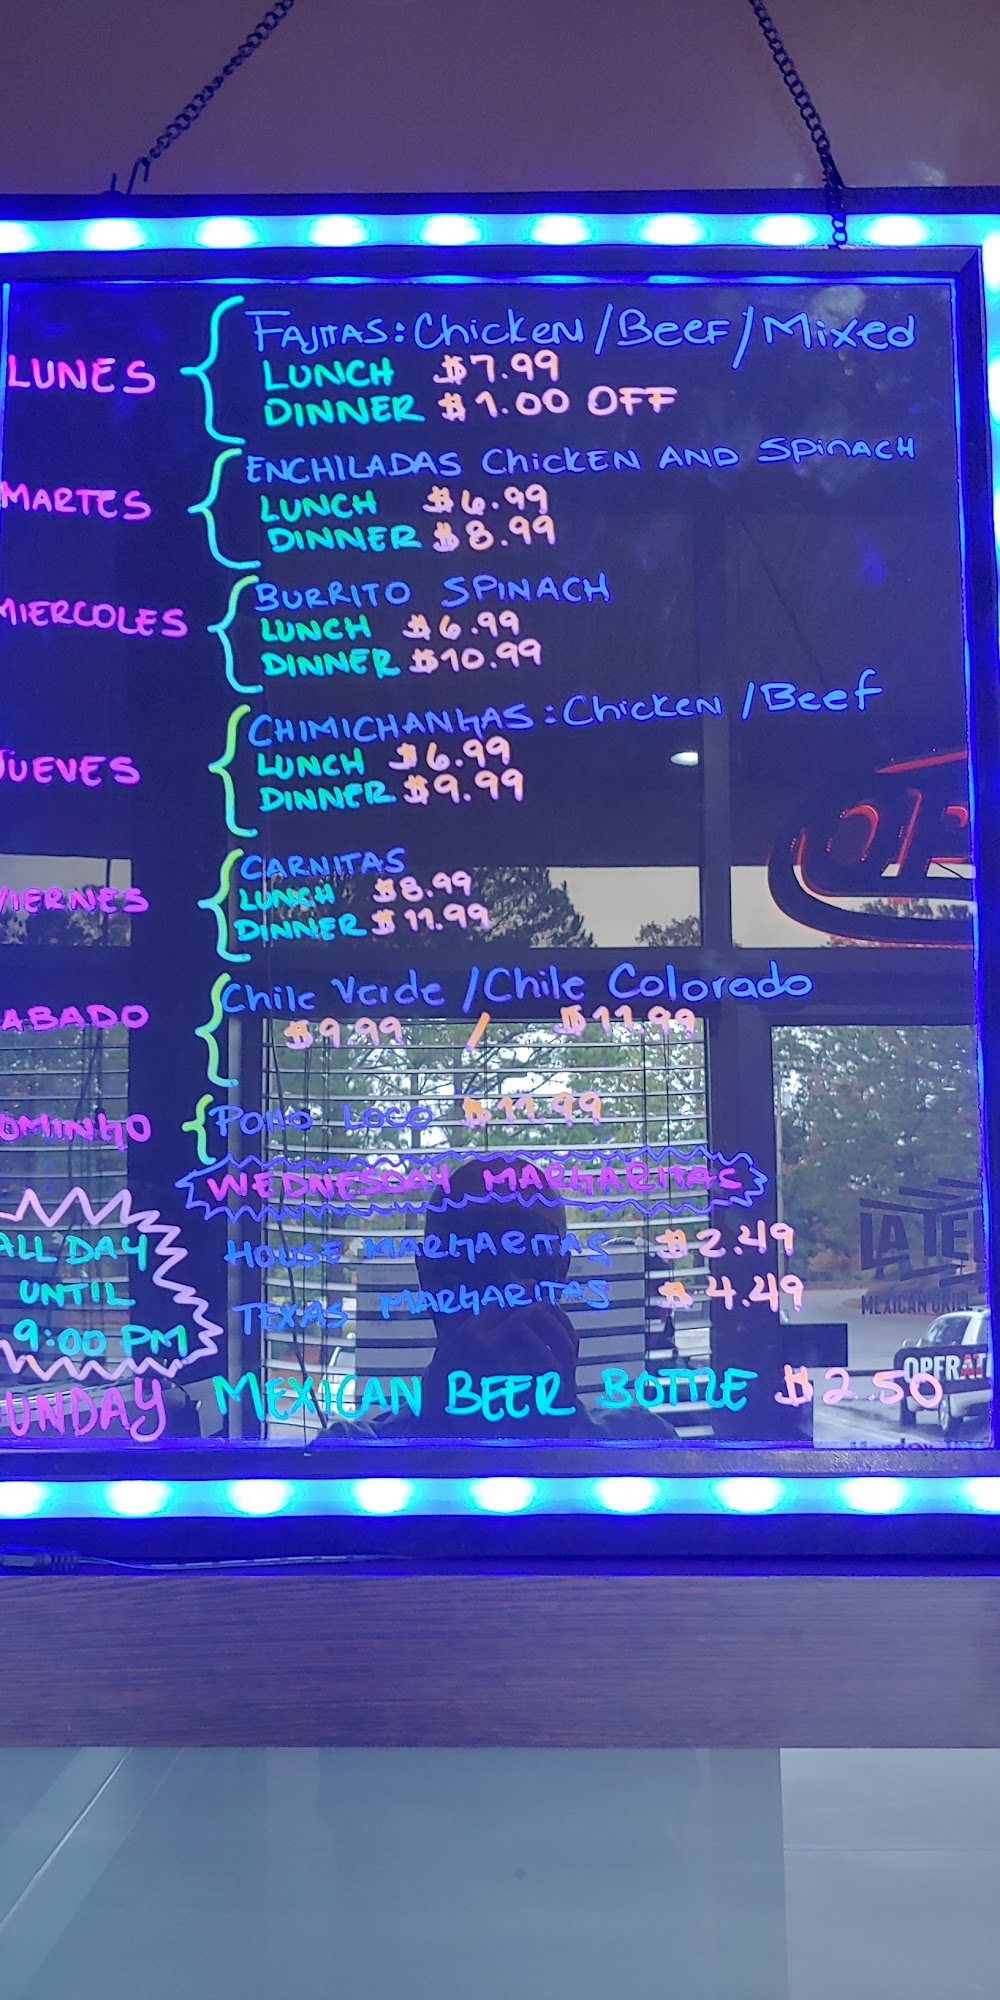 LUNES
FAJITAS: Chicken/Beef/Mixed
LUNCH $7.99
DINNER $1.00 OFF
MARTES
ENCHILADAS Chicken AND Spinach
LUNCH $6.99
DINNER $8.99
MIERCOLES
BURRITO SPINACH
LUNCH $6.99
DINNER $10.99
JUEVES
CHIMICHANGAS: Chicken/Beef
LUNCH $6.99
DINNER $9.99
VIERNES
CARNITAS
LUNCH $8.99
DINNER $11.99
ABADO
Chile Verde/Chile Colorado
$9.99 / $11.99
OMINGO
Pollo Loco $11.99
WEDNESDAY MARGARITAS
ALL DAY
UNTIL
9:00 PM
HOUSE MARGARITAS $2.49
TEXAS MARGARITAS $4.49
UNDAY MEXICAN BEER BOTTLE $2.50
LA TE
MEXICAN GRILL
OPERAT